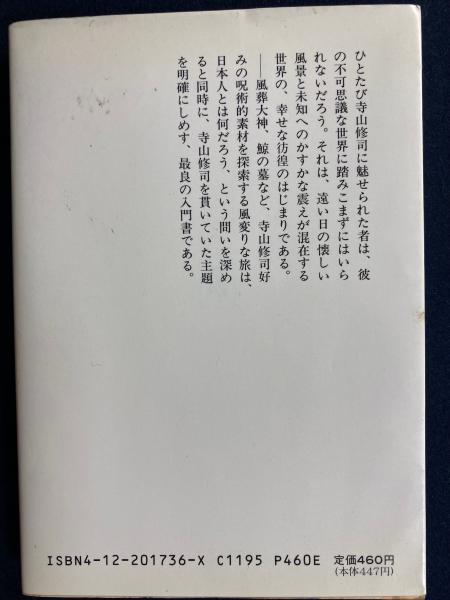 ひとたび寺山修司に魅せられた者は、彼
の不可思議な世界に踏みこまずにはいら
れないだろう。それは、遠い日の懐しい
風景と未知へのかすかな震えが混在する
世界の、幸せな彷徨のはじまりである。
――風葬大神、鯨の墓など、寺山修司好
みの呪術的素材を探索する風変りな旅は、
日本人とは何だろう、という問いを深め
ると同時に、寺山修司を貫いていた主題
を明確にしめす、最良の入門書である。
ISBN4-12-201736-X C1195 P460E 定価460円
(本体447円)